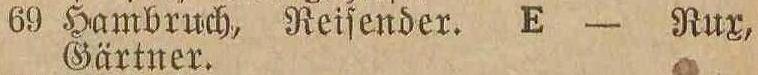 69 Hambruch, Reisender. E — Rux,
Gärtner.